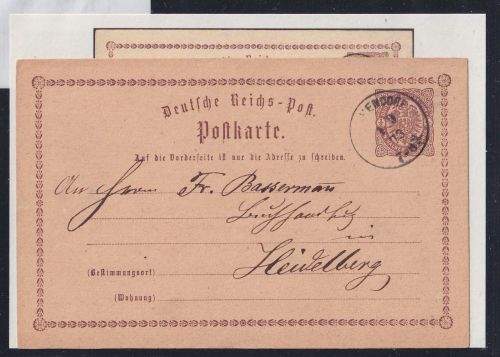 Deutsche Reichs-Post.
Postkarte.
Auf die Vorderseite ist nur die Adresse zu schreiben.
An Herrn Fr. Bassermann
Buchhandlg
in
Heidelberg
(Bestimmungsort)
(Wohnung)